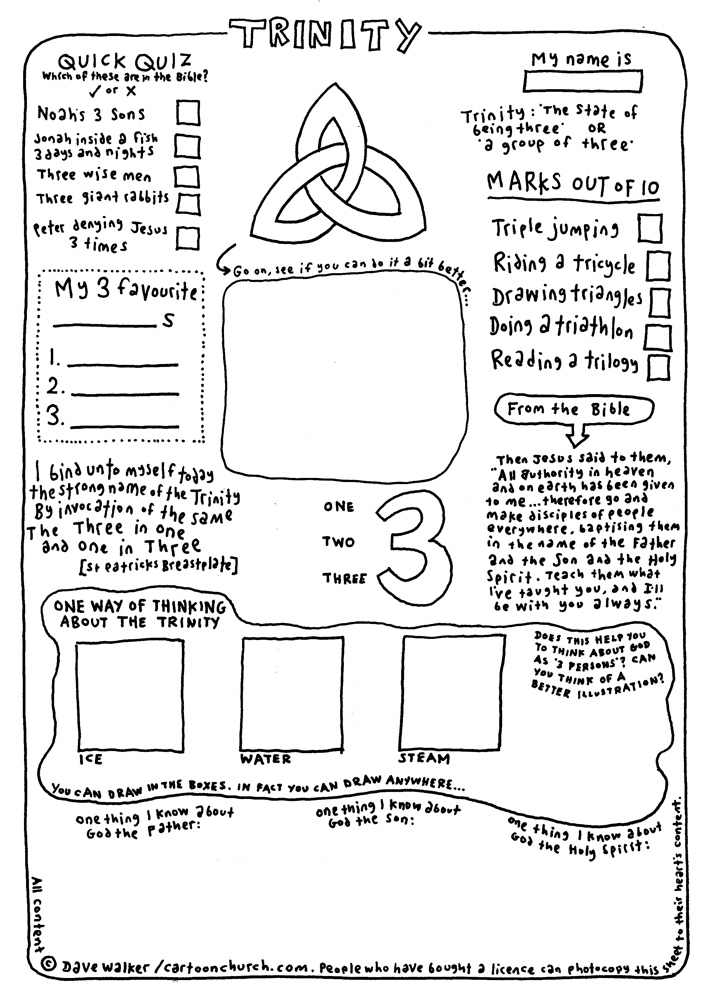 TRINITY
QUICK QUIZ
Which of these are in the Bible?
✓ or X
Noah's 3 Sons
Jonah inside a fish
3 days and nights
Three wise men
Three giant rabbits
Peter denying Jesus
3 times
My name is
Trinity: 'The state of
being three' OR
'a group of three'
MARKS OUT OF 10
Triple jumping
Riding a tricycle
Drawing triangles
Doing a triathlon
Reading a trilogy
Go on, see if you can do it a bit better...
My 3 favourite
s
1.
2.
3.
From the Bible
Then Jesus said to them,
"All authority in heaven
and on earth has been given
to me...therefore go and
make disciples of people
everywhere, baptising them
in the name of the Father
and the Son and the Holy
Spirit. Teach them what
I've taught you, and I'll
be with you always."
I bind unto myself today
the strong name of the Trinity
By invocation of the same
The Three in one
and one in Three
[St Patricks Breastplate]
ONE
TWO
THREE
3
ONE WAY OF THINKING
ABOUT THE TRINITY
ICE
WATER
STEAM
DOES THIS HELP YOU
TO THINK ABOUT GOD
AS '3 PERSONS'? CAN
YOU THINK OF A
BETTER ILLUSTRATION?
YOU CAN DRAW IN THE BOXES. IN FACT YOU CAN DRAW ANYWHERE...
one thing I know about
God the Father:
one thing I know about
God the Son:
one thing I know about
God the Holy Spirit:
All content
© Dave Walker / cartoonchurch.com. People who have bought a licence can photocopy this
sheet to their heart's content.